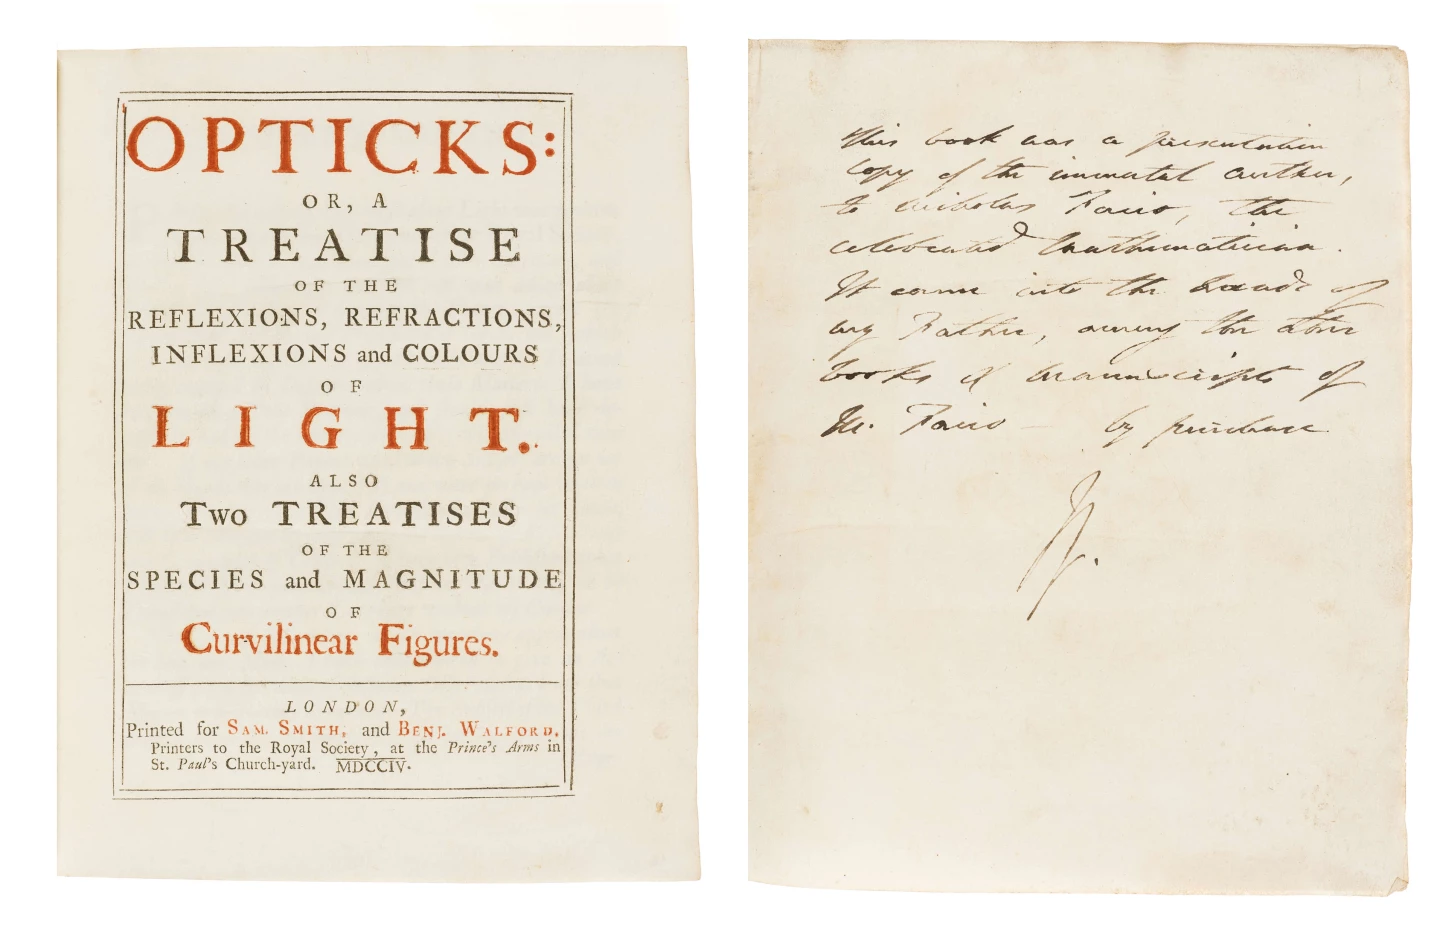 OPTICKS:
OR, A
TREATISE
OF THE
REFLEXIONS, REFRACTIONS,
INFLEXIONS and COLOURS
OF
LIGHT.
ALSO
Two TREATISES
OF THE
SPECIES and MAGNITUDE
OF
Curvilinear Figures.
LONDON,
Printed for SAM. SMITH, and BENJ. WALFORD,
Printers to the Royal Society, at the Prince's Arms in
St. Paul's Church-yard. MDCCIV.
This book was a presentation
copy of the immortal author,
to Nicholas Facio, the
celebrated Mathematician.
It came into the hands of
my Father, among the other
books & manuscripts of
Mr. Facio — by purchase